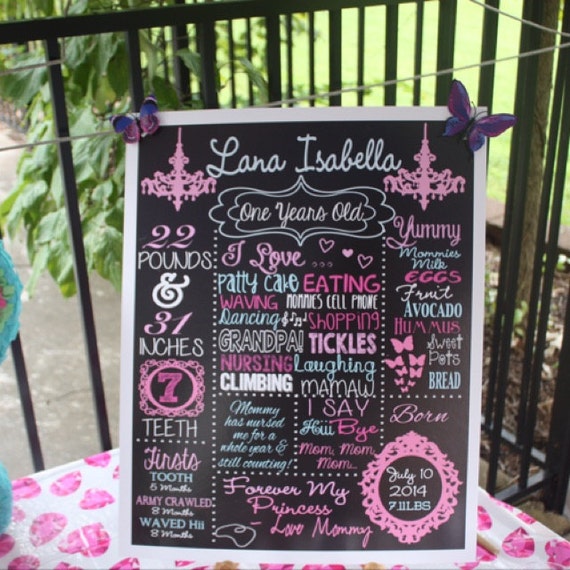 Lana Isabella
One Years Old
22
POUNDS
&
31
INCHES
7
TEETH
Firsts
TOOTH
5 Months
ARMY CRAWLED
8 Months
WAVED Hii
8 Months
I Love...
Patty Cake EATING
WAVING MOMMIES CELL PHONE
Dancing & SHOPPING
GRANDPA! TICKLES
NURSING Laughing
CLIMBING MAMAW
Mommy
has nursed
me for a
whole year &
still counting!
I SAY
Hii Bye
Mom, Mom,
Mom...
Forever My
Princess
- Love Mommy
Yummy
Mommies
Milk
EGGS
Fruit
AVOCADO
HUMMUS
Sweet
Pots
BREAD
Born
July 10
2014
7.11LBS